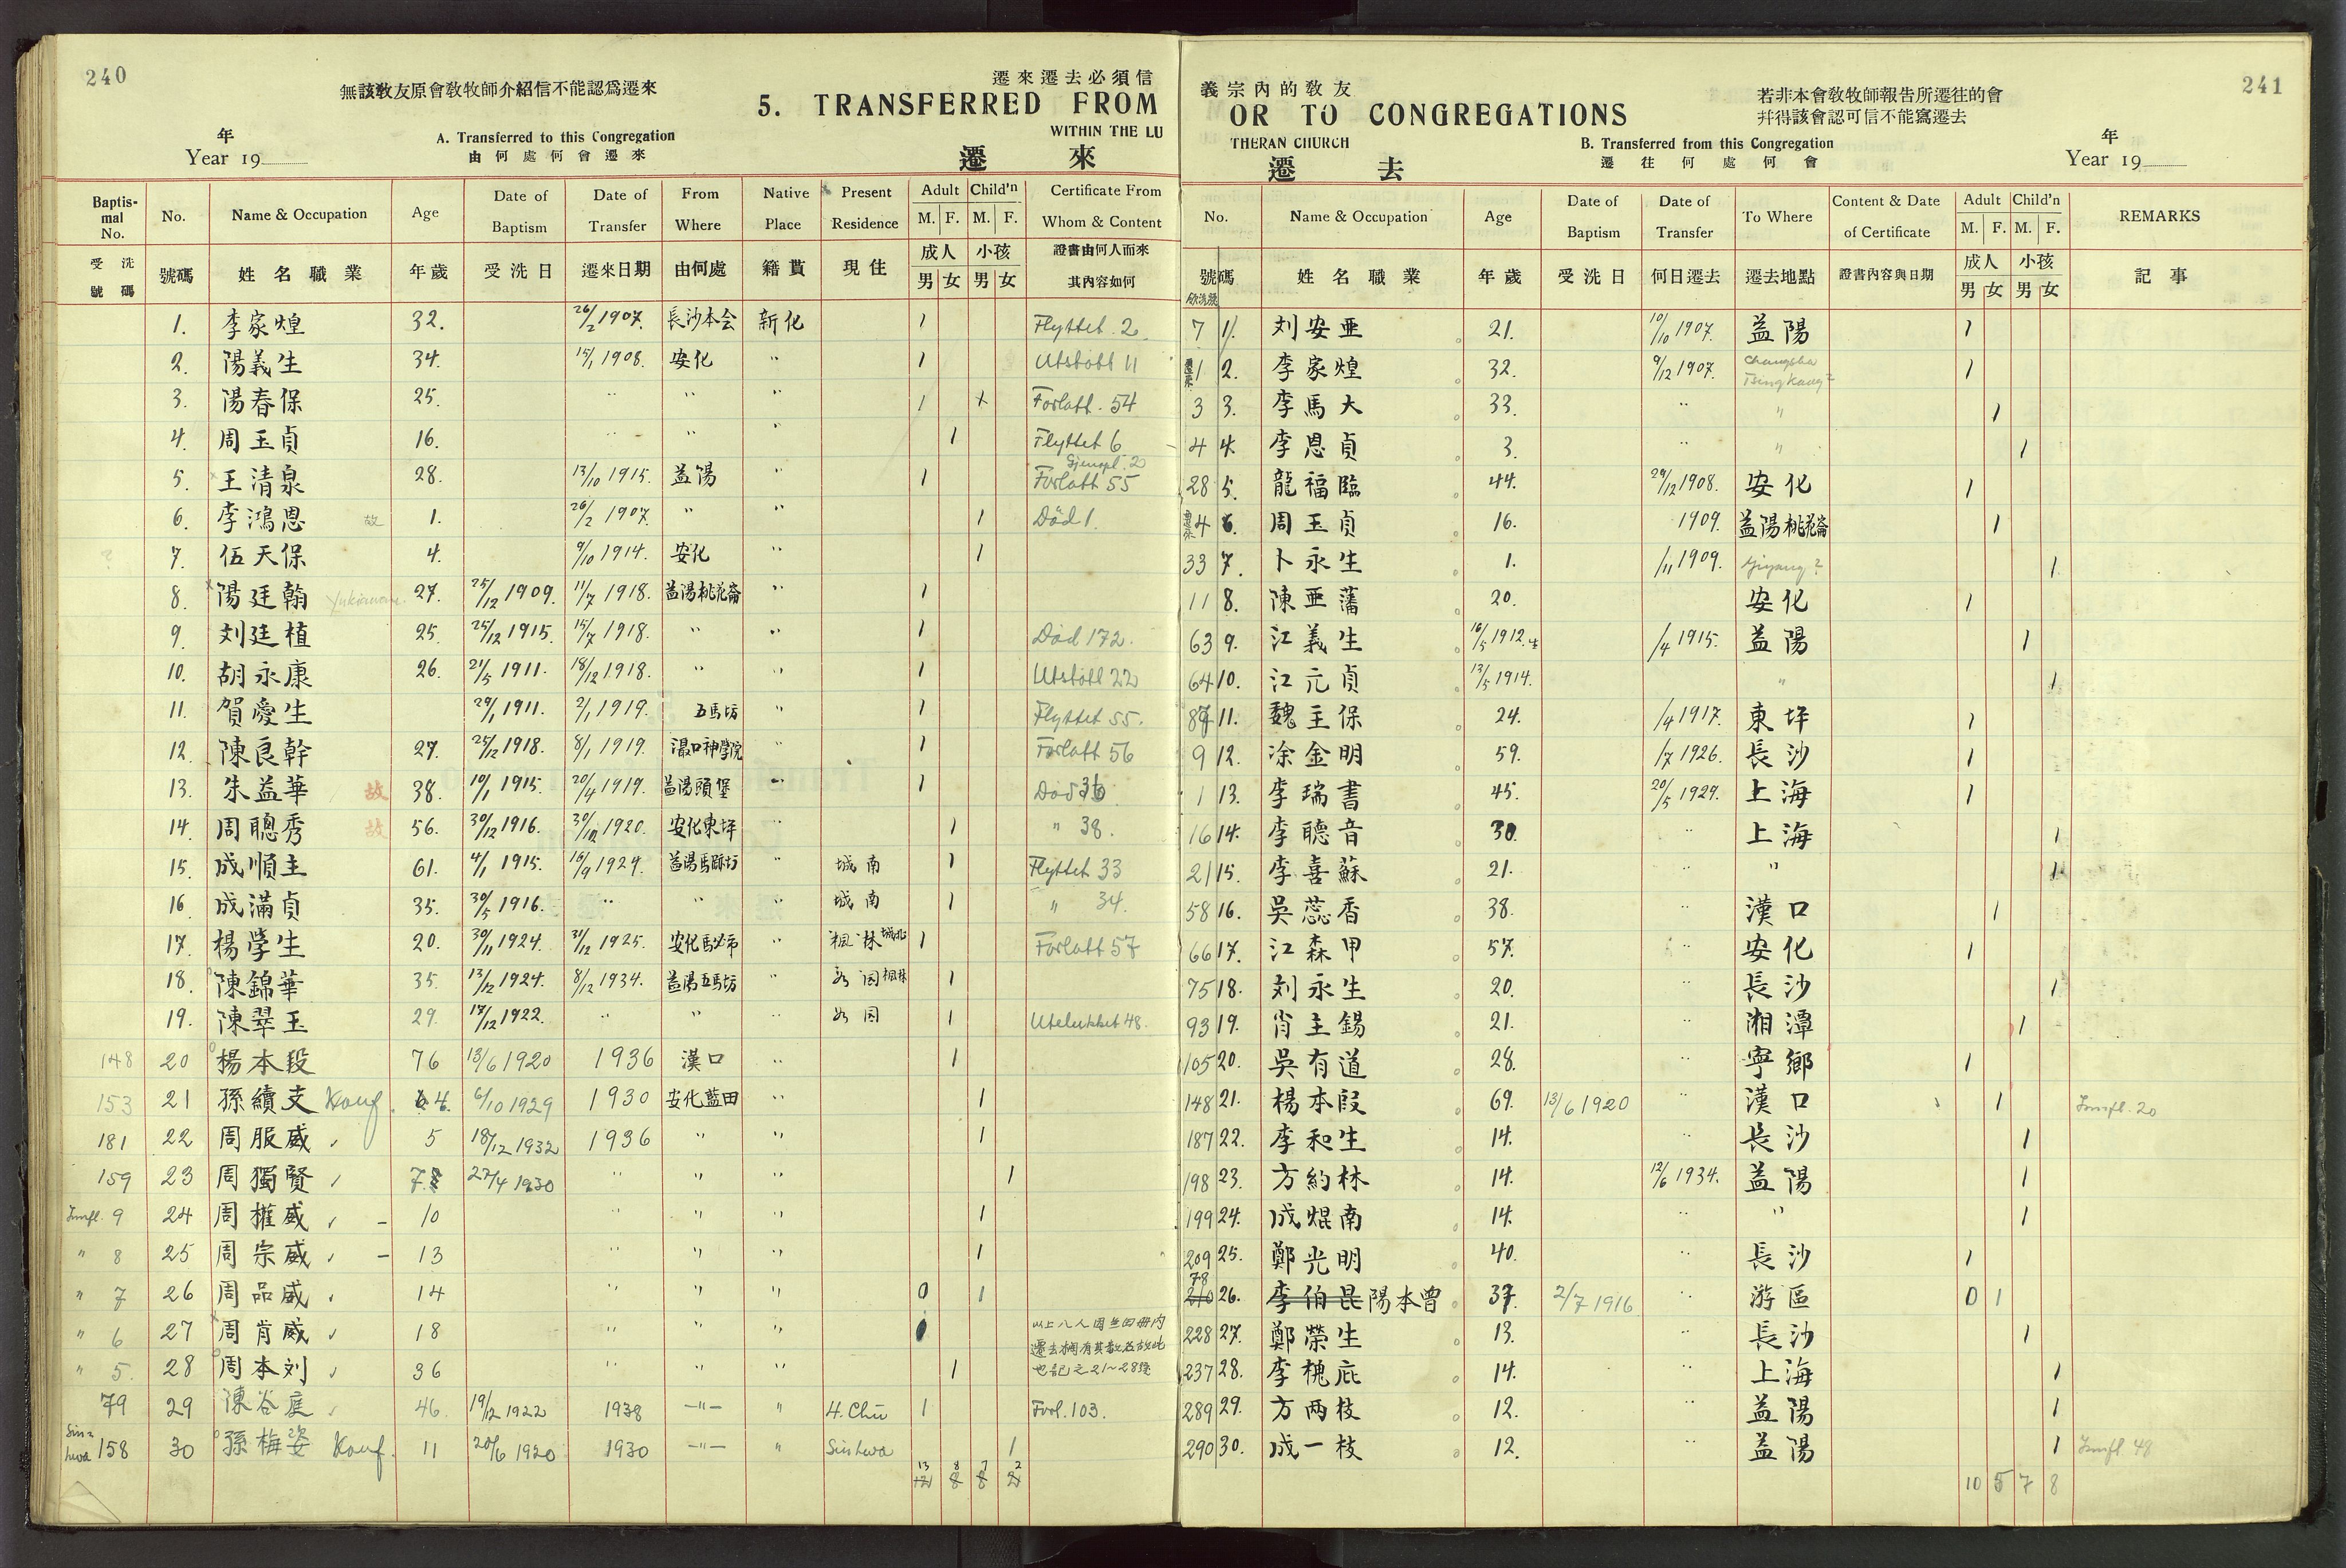 240
無該敎友原會敎牧師介紹信不能認爲遷來
遷來遷去必須信
5. TRANSFERRED FROM
WITHIN THE LU
年
Year 19
A. Transferred to this Congregation
由何處何會遷來
遷來
Baptismal No. No. Name & Occupation Age Date of Baptism Date of Transfer From Where Native Place Present Residence Adult M. F. Child'n M. F. Certificate From Whom & Content
受洗號碼 號碼 姓名職業 年歲 受洗日 遷來日期 由何處 籍貫 現住 成人 男 女 小孩 男 女 證書由何人而來其內容如何
1. 李家煌 32. 26/2 1907. 長沙本会 新化 1 Flyttet 2
2. 陽義生 34. 15/1 1908. 安化 " 1 Utstött 11
3. 陽春保 25. " " " 1 x Forlatt. 54
4. 周玉貞 16. " " " 1 Flyttet 6
5. 王清泉 28. 13/10 1915. 益陽 " 1 Forlatt 55
6. 李鴻恩 故 1. 26/2 1907. " " 1 Död 1.
7. 伍天保 4. 9/10 1914. 安化 " 1
8. 陽廷翰 27. 25/12 1909. 11/7 1918. 益陽桃花崙 " 1
9. 刘廷植 25. 25/12 1915. 15/7 1918. " " 1 Död 172.
10. 胡永康 26. 21/5 1911. 18/12 1918. " " 1 Utstött 22
11. 賀愛生 29/1 1911. 2/1 1919. 五馬坊 " 1 Flyttet 55.
12. 陳良幹 27. 25/12 1918. 8/1 1919. 灄口神學院 " 1 Forlatt 56
13. 朱益華 故 38. 10/1 1915. 20/4 1919. 益陽頭堡 " 1 Död 36
14. 周聰秀 故 56. 30/12 1916. 30/12 1920. 安化東坪 " 1 " 38.
15. 成順主 61. 4/1 1915. 16/9 1924. 益陽馬跡坊 " 城南 1 Flyttet 33
16. 成滿貞 35. 30/5 1916. " " " 城南 1 " 34.
17. 楊學生 20. 30/11 1924. 31/12 1925. " 楓林 城北 1 Forlatt 57
18. 陳錦華 35. 13/12 1924. 8/12 1934. 益陽五馬坊 " 1
19. 陳翠玉 29. 17/12 1922. " " " 1 Utelukket 48.
148 20 楊本段 76 13/6 1920 1936 漢口 " 1
153 21 孫續支 Konf. 4. 6/10 1929 1930 安化藍田 " 1
181 22 周服威 " 5 18/12 1932 1936 " " 1
159 23 周獨賢 " 7. 27/4 1930 " " " 1
Innfl. 9 24 周權威 " - 10 " " " 1
" 8 25 周宗威 " - 13 " " " 1
" 7 26 周品威 " 14 " " " 0 1
" 6 27 周肖威 " 18 " " "
" 5. 28 周本刘 " 36 " " " 1
79 29 陳谷庭 " 46 19/12 1922 1938 -"- " H. Chü 1 Forl. 103.
Sinhwa 158 30 孫梅姿 Konf. 11 20/6 1920 1930 -"- " Sinhwa 1
13 8 7 2
241
義宗內的敎友
OR TO CONGREGATIONS
THERAN CHURCH
若非本會敎牧師報告所遷往的會
幷得該會認可信不能寫遷去
B. Transferred from this Congregation
遷往何處何會
年
Year 19
遷去
No. Name & Occupation Age Date of Baptism Date of Transfer To Where Content & Date of Certificate Adult M. F. Child'n M. F. REMARKS
號碼 姓名職業 年歲 受洗日 何日遷去 遷去地點 證書內容與日期 成人 男 女 小孩 男 女 記事
7 1. 刘安亜 21. 10/10 1907. 益陽 1
遷來 1 2. 李家煌 32. 9/12 1907. Changsha Tsingkang? 1
3 3. 李馬大 33. " " 1
4 4. 李恩貞 3. " " 1
28 5. 龍福臨 44. 29/12 1908. 安化 1
遷來 4 6. 周玉貞 16. 1909. 益陽桃花崙 1
33 7. 卜永生 1. /11 1909. Yiyang? 1
11 8. 陳亜藩 20. 安化 1
63 9. 江義生 16/5 1912.生 /4 1915. 益陽 1
64 10. 江元貞 13/5 1914. " 1
87 11. 魏主保 24. /4 1917. 東坪 1
9 12. 凃金明 59. /7 1926. 長沙 1
1 13. 李瑞書 45. 20/5 1929. 上海 1
16 14. 李聽音 30. " 上海 1
21 15. 李喜蘇 21. " " 1
58 16. 吳蕊香 38. " 漢口 1
66 17. 江森甲 57. " 安化 1
75 18. 刘永生 20. " 長沙 1
93 19. 肖主錫 21. " 湘潭 1
105 20. 吳有道 28. " 寧鄉 1
148 21. 楊本段 69. 13/6 1920 " 漢口 1 Innfl. 20
187 22. 李和生 14. " 長沙 1
198 23. 方約林 14. 12/6 1934. 益陽 1
199 24. 成焜南 14. " " 1
209 25. 鄭光明 40. " 長沙 1
78 210 26. 李伯昆 陽本曾 37. 2/7 1916 " 游區 0 1
228 27. 鄭榮生 13. " 長沙 1
237 28. 李槐庇 14. " 上海 1
289 29. 方两枝 12. " 益陽 1
290 30. 成一枝 12. " 益陽 1 Innfl. 48
10 5 7 8